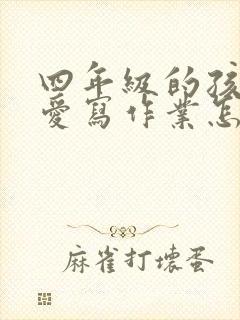 四年級的孩
愛寫作業怎
麻雀打壞蛋